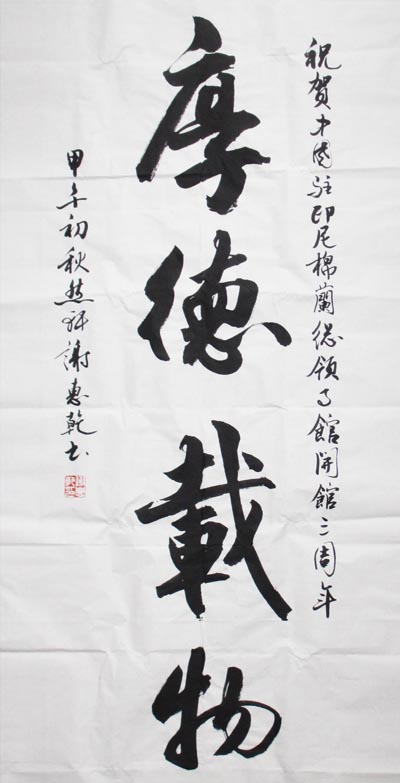 祝贺中国驻印尼棉蘭总领事館開館三周年
厚德載物
甲午初秋
謝惠乾书